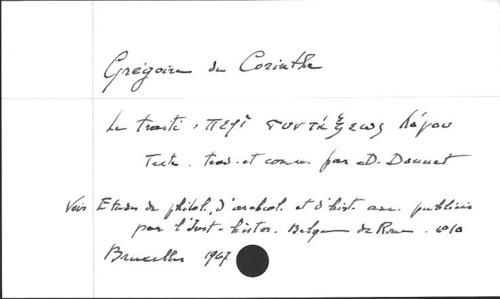 Grégoire de Corinthe
Le traité : περὶ συντάξεως λόγου
Texte, trad. et comm. par D. Donnet
Voir Etudes de philol., d'archéol. et d'hist. anc. publiées
par l'Inst. histor. Belge de Rome.
Bruxelles 1967